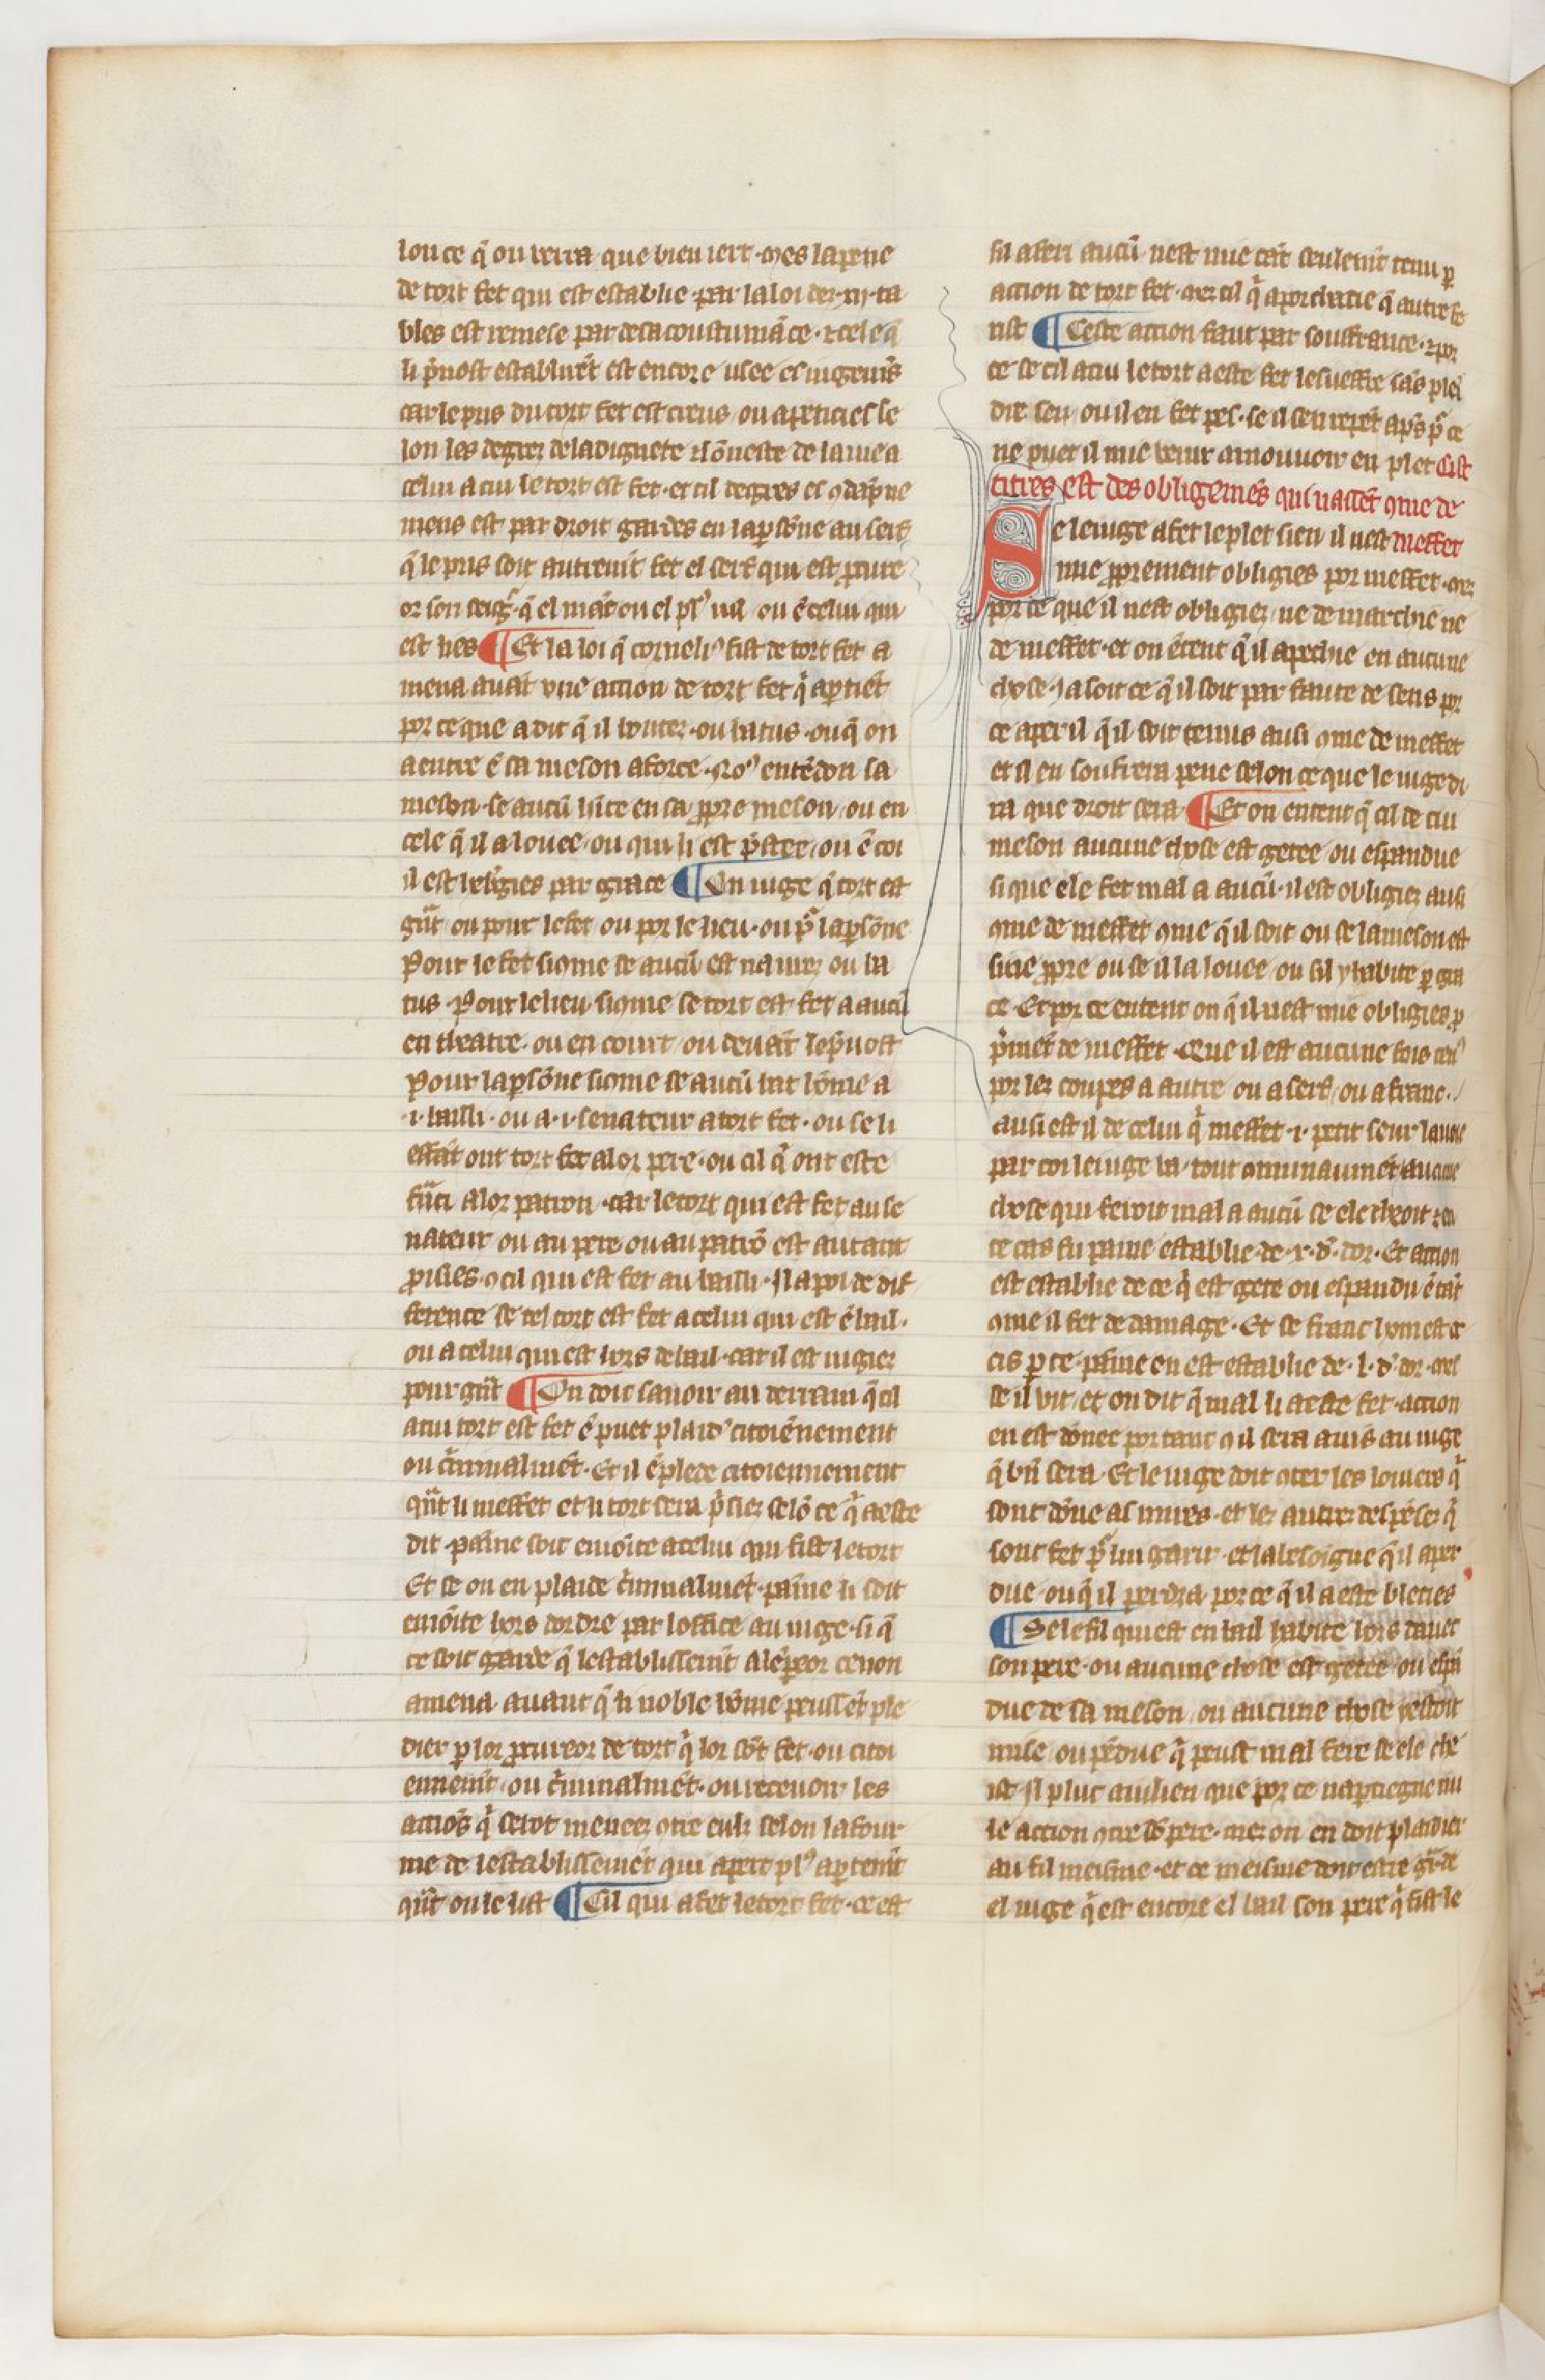 lon ce q̃ on verra que bien iert · mes la peine
de tort fet qui est establie par la loi des · xij · ta
bles est remese par desacoustumãce · ⁊ cele q̃
li p̃uost establirẽt est encore usee es iugemẽs
car le pris du tort fet est creus ou apeticies se
lon les degrez de la dignete ⁊ lõneste de la uie a
celui a cui le tort est fet · et cil degres es ꝯdãpne
mens est par droit gardes en la ꝑsõne au serf
q̃ le pris soit autremẽt fet el serf qui est ꝓcure
or son seign̄ · q̃ el maẽ ou el plꝰ uil ou ẽ celui qui
est nes ¶ Et la loi q̃ corneliꝰ fist de tort fet a
mena auãt une action de tort fet q̃ apartiẽt
por ce que a dit q̃ il boutez · ou batus · ou q̃ on
a entre ẽ sa meson a force · Noꝰ entẽdon sa
meson · se aucũ hãte en sa ꝓpre meson / ou en
cele q̃ il a louee / ou qui li est p̃stee / ou ẽ coi
il est h̃bergies par grace ¶ On iuge q̃ tort est
gñt ou pour le fet ou por le lieu · ou p̃ la ꝑsõne
Pour le fet si ꝯme se aucũ est naurez ou ba
tus · Pour le lieu si ꝯme se tort est fet a aucũ
en theatre · ou en court / ou deuãt le p̃uost
Pour la ꝑsõne si ꝯme se aucũ uil hõme a
· i · bailli · ou a · i · senateur a tort fet · ou se li
effãt ont tort fet a lor pere · ou cil q̃ ont este
frãci a lor patron · car le tort qui est fet au se
nateur ou au pere ou au patrõ est autant
prisies · ꝯ cil qui est fet au bailli · Il a poi de dif
ference se tel tort est fet a celui qui est ẽ bail ·
ou a celui qui est hors de bail · car il est iugiez
pour gñt ¶ On doit sauoir au derrain q̃ cil
a cui tort est fet ẽ puet plaidꝰ citoiẽnement
ou c̃minalmẽt · Et se il ẽ plede citoiennement
qñt li meffet et li tort sera p̃siez selõ ce q̃ a este
dit · paĩne soit eniõite a celui qui fist le tort
Et se on en plaide c̃minalmẽt · paĩne li soit
eniõite hors dordre par loffice au iuge · si q̃
ce soit garde q̃ lestablissemẽt a lẽpeor cenon
amena auant q̃ li noble hõme peussẽt ple
dier ꝑ lor ꝓcureor de tort q̃ lor sõt fet · ou citoi
ennemẽt · ou c̃minalmẽt · ou receuoir les
actiõs q̃ serõt menees ꝯtre eulz selon la four
me de lestablissemẽt qui apert plꝰ apertemẽt
qñt on le list ¶ Cil qui a fet le tort fet · ce est
sil a feri aucũ nest mie tãt seulemẽt tenu ꝑ
action de tort fet · mez cil q̃ a porchacie q̃ autre fe
rist ¶ Ceste action faut par souffrance · ⁊ por
ce se cil a cui le tort a este fet le sueffre sãs plei
dre sen / ou il en fet pes · se il sen repẽt ap̃s p̃ ce
ne puet il mie venir a mouuoir en plet Cist
titres est des obligemẽs qui naissẽt ꝯme de
Se le iuge a fet le plet sien il nest meffet
mie ꝓprement obligies por meffet · mez
por ce que il nest obligiez / ne de marchie ne
de meffet · et on ẽtent q̃ il a pechie en aucune
chose · ia soit ce q̃ il soit par faute de sens por
ce apert il q̃ il soit tenus ausi ꝯme de meffet
et il en soufrera peine selon ce que le iuge di
ra que droit sera ¶ Et on entent q̃ cil de cui
meson aucune chose est getee / ou espandue
si que ele fet mal a aucũ · il est obligiez ausi
ꝯme de meffet ꝯme q̃ il soit ou se la meson est
siene ꝓpre ou se il la louee / ou sil y habite ꝑ gra
ce · Et por ce entent on q̃ il nest mie obligies ꝓ
p̃mẽt de meffet · Que il est aucune fois tenꝰ
por les coupes a autre / ou a serf / ou a franc ·
ausi est il de celui q̃ meffet · i · petit seur la uoie
par coi le iuge va · tout ꝯmunaumẽt / aucune
chose qui feroit mal a aucũ se ele cheoit · ⁊ en
ce cas fu paine establie · de · x · d̃ · dor · Et action
est establie de ce q̃ est gete ou espandu ẽ tãt
ꝯme il fet de damage · Et se franc hom est o
cis ꝑ ce · paĩne en est establie de · l · d̃ · dor · mes
se il vit / et on dit q̃ mal li a este fet · action
en est donee por tant ꝯ il sera auis au iuge
q̃ biẽ sera · Et le iuge doit ꝯter les louiers q̃
sont dõne as mires · et les autres despẽses q̃
sont fet p̃ lui garir · et la besoigne q̃ il a per
due / ou q̃ il perdra por ce q̃ il a este blecies
¶ Se le fil qui est en bail habite hors dauec
son pere · ou aucune chose est getee · ou espã
due de sa meson / ou aucune chose i estoit
mise / ou pẽdue q̃ peust mal fere se ele che
ist · Il plut a iulien que por ce napartiegne nu
le action ꝯtre sõ pere · mez on en doit plaidier
au fil meisme · et ce meisme doit estre gãde
el iuge q̃ est encore el bail son pere q̃ fist le